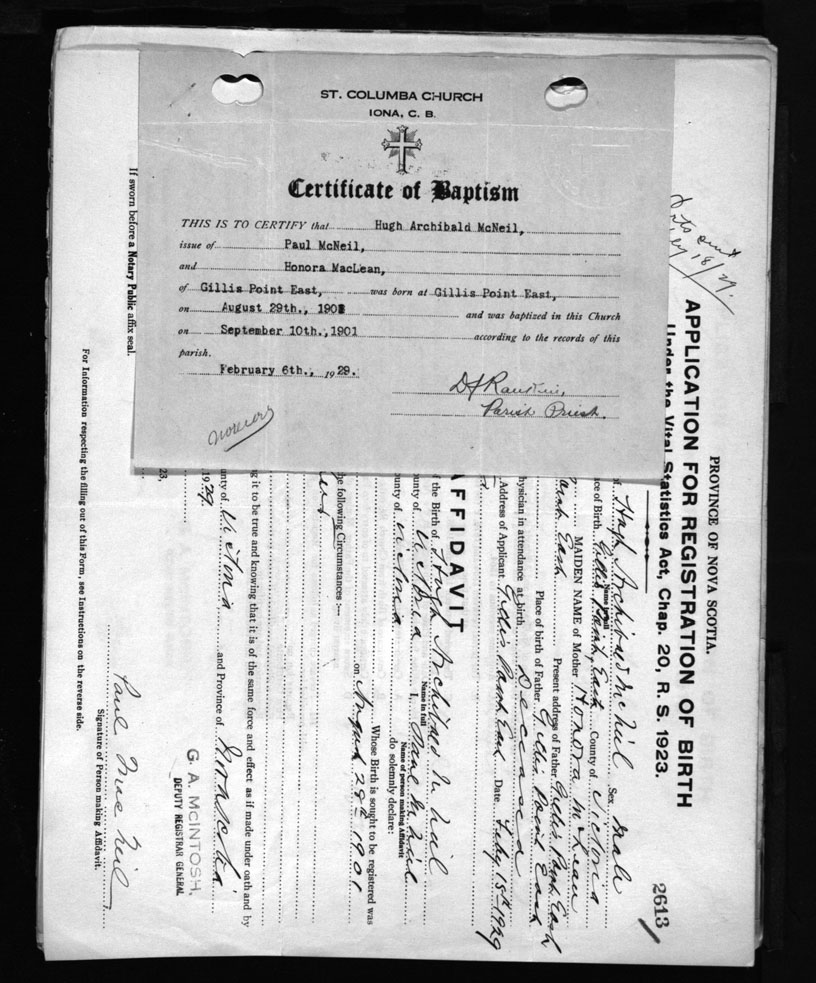 ST. COLUMBA CHURCH
IONA, C. B.
Certificate of Baptism
THIS IS TO CERTIFY that Hugh Archibald McNeil,
issue of Paul McNeil,
and Honora MacLean,
of Gillis Point East, was born at Gillis Point East,
on August 29th., 1901 and was baptized in this Church
on September 10th., 1901 according to the records of this
parish.
February 6th., 1929.
Parish Priest.
PROVINCE OF NOVA SCOTIA.
APPLICATION FOR REGISTRATION OF BIRTH
Under the Vital Statistics Act, Chap. 20, R. S. 1923.
2613
Hugh Archibald McNeil Sex Male
Name in full
ce of Birth Gillis Point East County of Victoria
MAIDEN NAME of Mother Honora McLean
East Present address of Father Gillis Point East
Place of birth of Father Gillis Point East
hysician in attendance at birth. Deceased
Address of Applicant Gillis Point East Date July 15th 1929
AFFIDAVIT
the Birth of Hugh Archibald McNeil
Name in full
ounty of Victoria I, Paul McNeil
Name of person making Affidavit
ounty of Victoria do solemnly declare:
Whose Birth is sought to be registered was
on August 29th 1901
he following Circumstances :—
g it to be true and knowing that it is of the same force and effect as if made under oath and by
nty of Victoria and Province of Nova Scotia
1929.
23,
G. A. McINTOSH,
DEPUTY REGISTRAR GENERAL
Paul MacNeil
Signature of Person making Affidavit.
If sworn before a Notary Public affix seal.
For Information respecting the filling out of this Form, see Instructions on the reverse side.